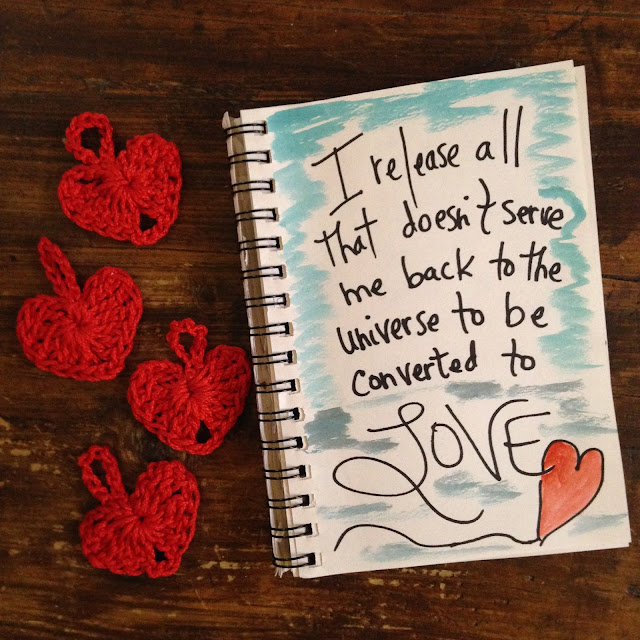 I release all
that doesn't serve
me back to the
universe to be
converted to
LOVE